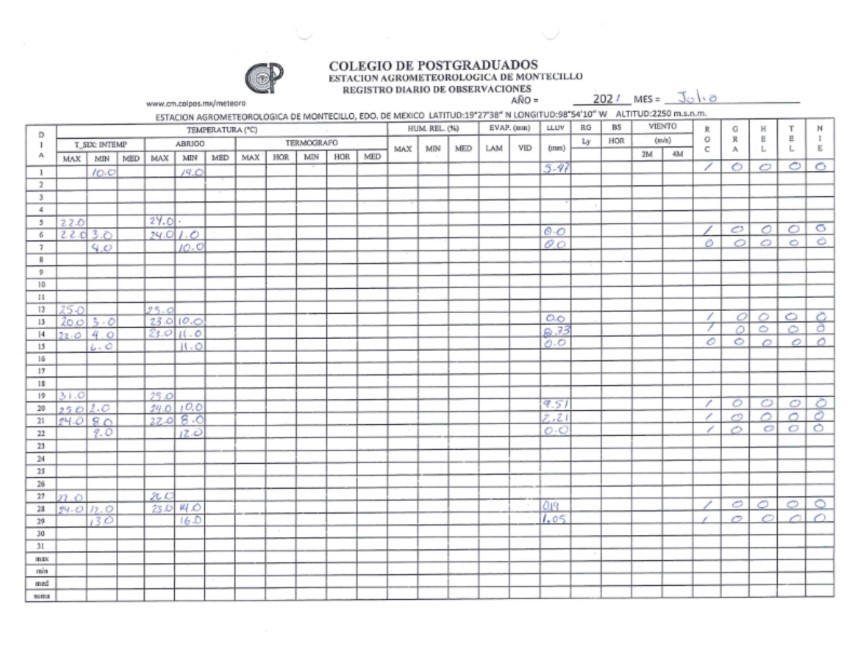 COLEGIO DE POSTGRADUADOS
ESTACION AGROMETEOROLOGICA DE MONTECILLO
REGISTRO DIARIO DE OBSERVACIONES
www.cm.colpos.mx/meteoro AÑO = 2021 MES = Julio
ESTACION AGROMETEOROLOGICA DE MONTECILLO, EDO. DE MEXICO LATITUD:19°27'38" N LONGITUD:98°54'10" W ALTITUD:2250 m.s.n.m.
DIA TEMPERATURA (°C) HUM. REL. (%) EVAP. (mm) LLUV RG BS VIENTO ROC GRA HEL TEL NIE
T_SIX: INTEMP ABRIGO TERMOGRAFO (mm) Ly HOR (m/s)
MAX MIN MED MAX MIN MED MAX HOR MIN HOR MED MAX MIN MED LAM VID 2M 4M
1 10.0 14.0 5.97 1 0 0 0 0
2
3
4
5 22.0 24.0
6 22.0 3.0 24.0 1.0 0.0 1 0 0 0 0
7 4.0 10.0 0.0 0 0 0 0 0
8
9
10
11
12 25.0 25.0
13 20.0 3.0 23.0 10.0 0.0 1 0 0 0 0
14 22.0 4.0 23.0 11.0 8.73 1 0 0 0 0
15 6.0 11.0 0.0 0 0 0 0 0
16
17
18
19 31.0 25.0
20 25.0 2.0 24.0 10.0 9.51 1 0 0 0 0
21 24.0 8.0 22.0 8.0 2.21 1 0 0 0 0
22 9.0 12.0 0.0 1 0 0 0 0
23
24
25
26
27 27.0 26.0
28 24.0 12.0 23.0 14.0 1 0 0 0 0
29 13.0 16.0 1.05 1 0 0 0 0
30
31
max
min
med
suma